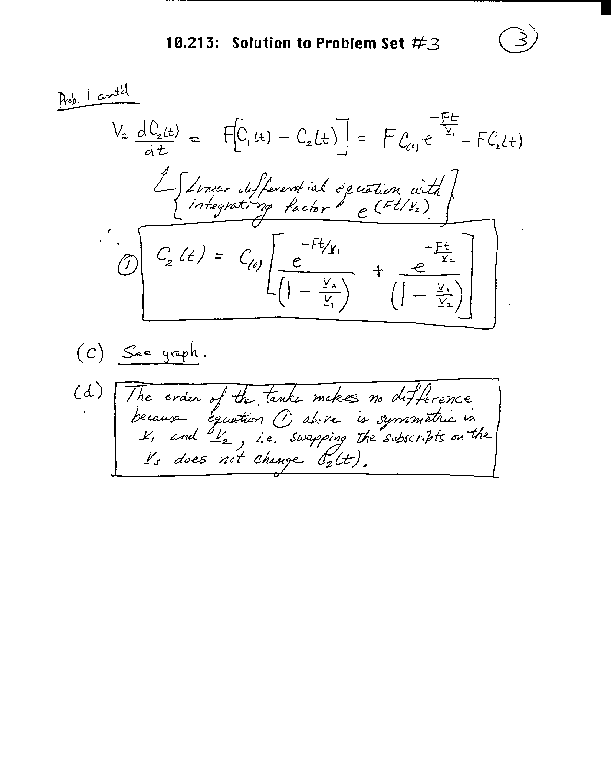 10.213: Solution to Problem Set #3
3
Prob. 1 cont'd
V₂ dC₂(t)/dt = F[C₁(t) − C₂(t)] = F C₍₀₎ e^(−Ft/V₁) − FC₂(t)
{Linear differential equation with
integrating factor e^(Ft/V₂)}
① C₂(t) = C₍₀₎ [ e^(−Ft/V₁) / (1 − V₂/V₁) + e^(−Ft/V₂) / (1 − V₁/V₂) ]
(c) See graph.
(d) The order of the tanks makes no difference
because equation ① above is symmetric in
V₁ and V₂, i.e. swapping the subscripts on the
V's does not change C₂(t).